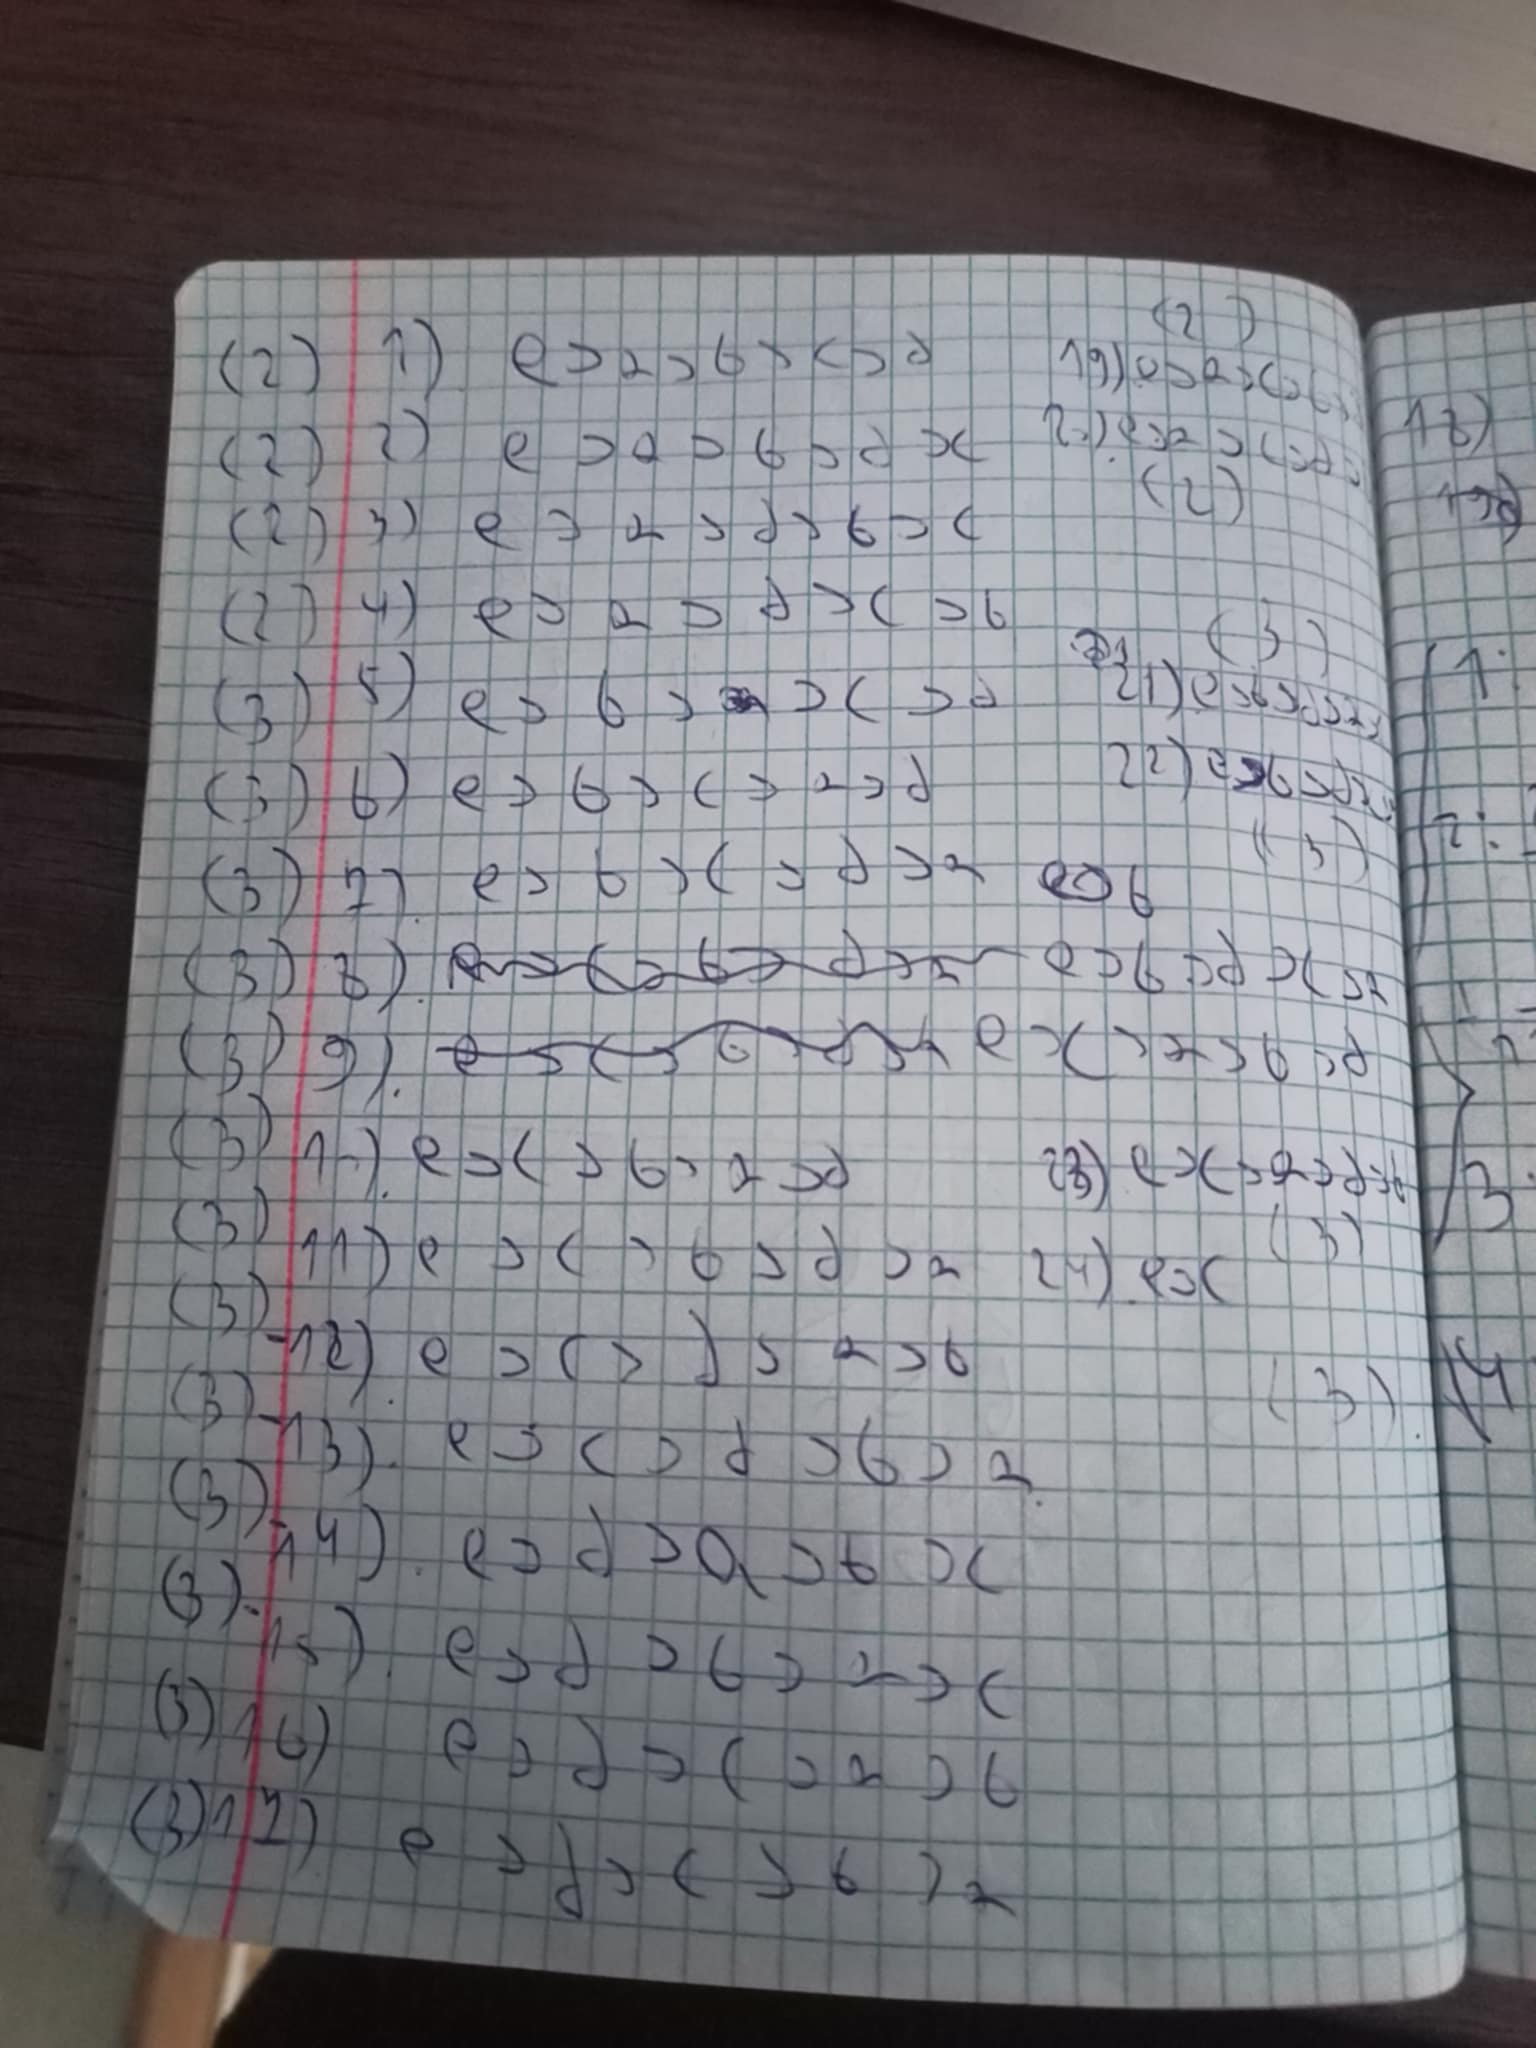 (2) 1) e > a > b > c > d
(2) 2) e > a > b > d > c
(2) 3) e > a > d > b > c
(2) 4) e > a > d > c > b
(3) 5) e > b > a > c > d
(3) 6) e > b > c > a > d
(3) 7) e > b > c > d > a
(3) 8) e > c > b > d > a e > b > d > c > a
(3) 9) e > c > b > d > a e > c > a > b > d
(3) 10) e > c > b > a > d
(3) 11) e > c > b > d > a
(3) 12) e > c > d > a > b
(3) 13) e > c > d > b > a
(3) 14) e > d > a > b > c
(3) 15) e > d > b > a > c
(3) 16) e > d > c > a > b
(3) 17) e > d > c > b > a
(2)
19) e > a > c > b >
20) e > a > c > d >
(2)
(3)
21) e > b > d > a >
22) e > b > d >
(3)
e > b
23) e > c > a > d > b
(3)
24) e > c
(3)
18)
1:
2:
3:
4